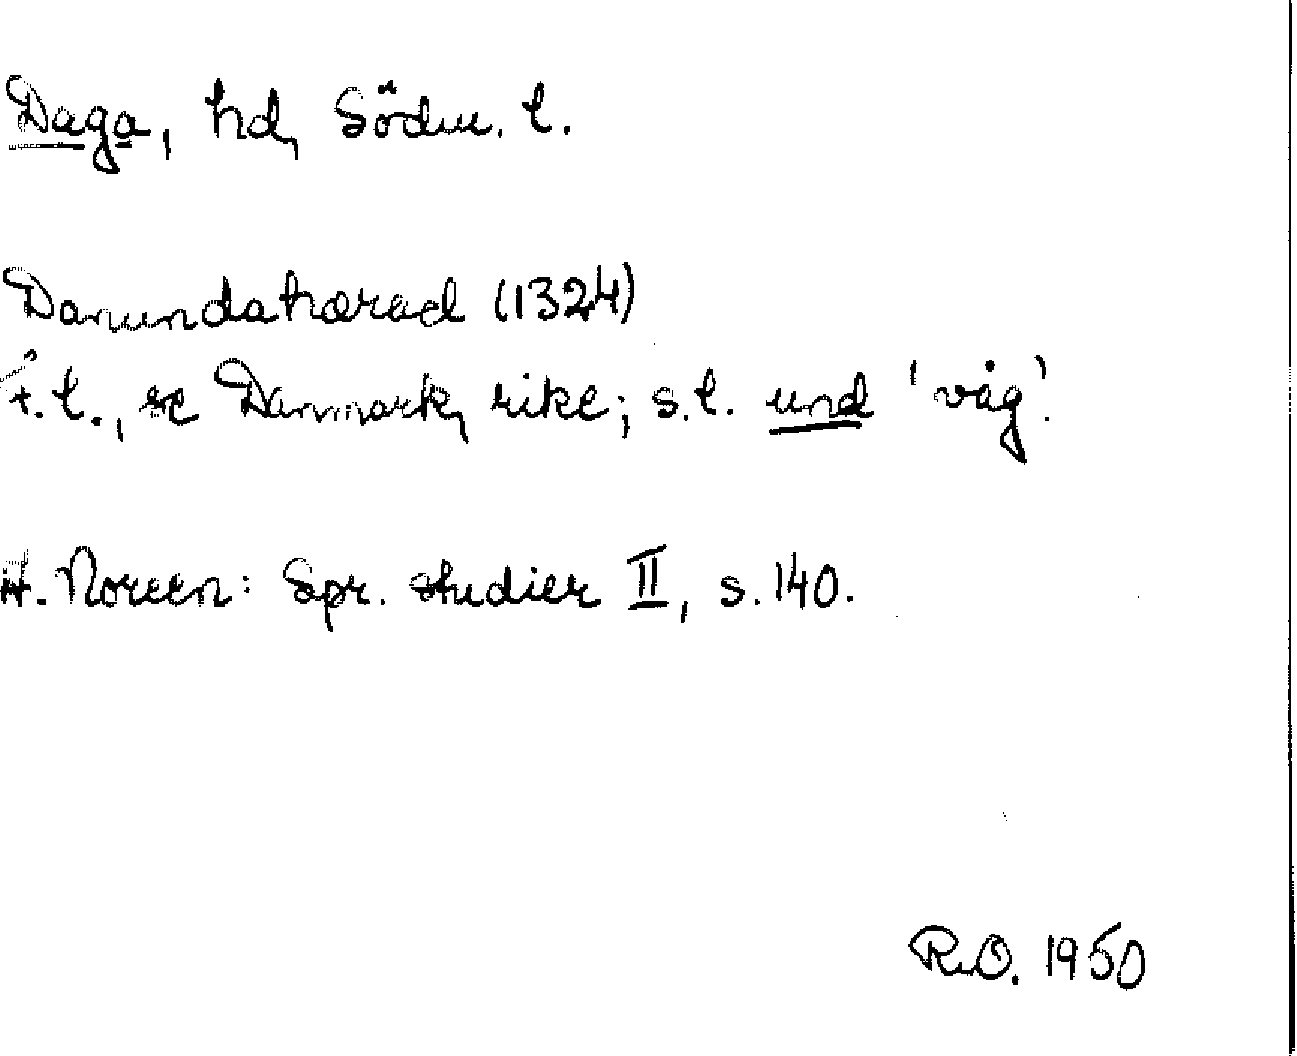 Daga, hd, Södm. l.
Danundahærad (1324)
F.l., se Danmark, rike; s.l. und 'våg'.
A. Noreen: Spr. studier II, s. 140.
R.O. 1950